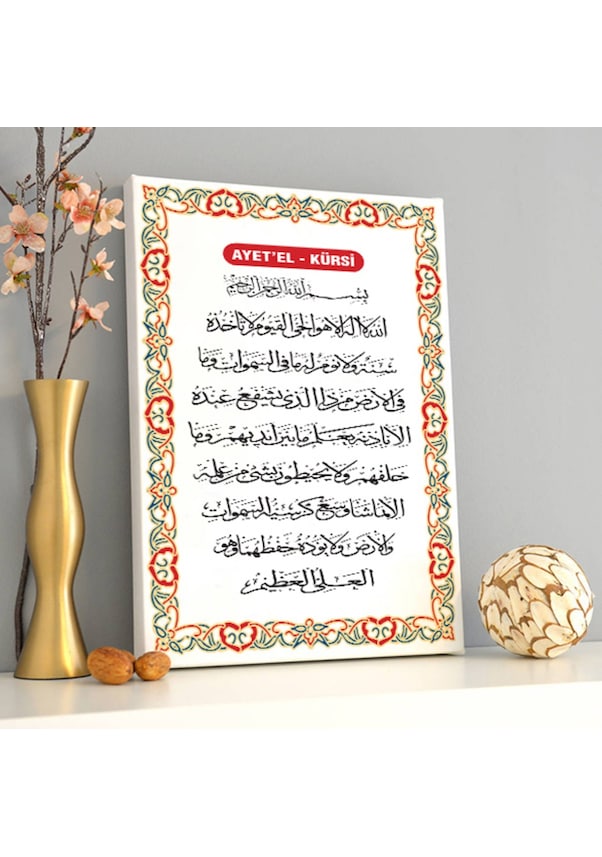 AYET'EL - KÜRSİ
بسم الله الرحمن الرحيم
الله لا اله الا هو الحي القيوم لا تأخذه
سنة ولا نوم له ما في السموات وما
في الارض من ذا الذي يشفع عنده
الا باذنه يعلم ما بين ايديهم وما
خلفهم ولا يحيطون بشئ من علمه
الا بما شاء وسع كرسيه السموات
والارض ولا يؤده حفظهما وهو
العلي العظيم